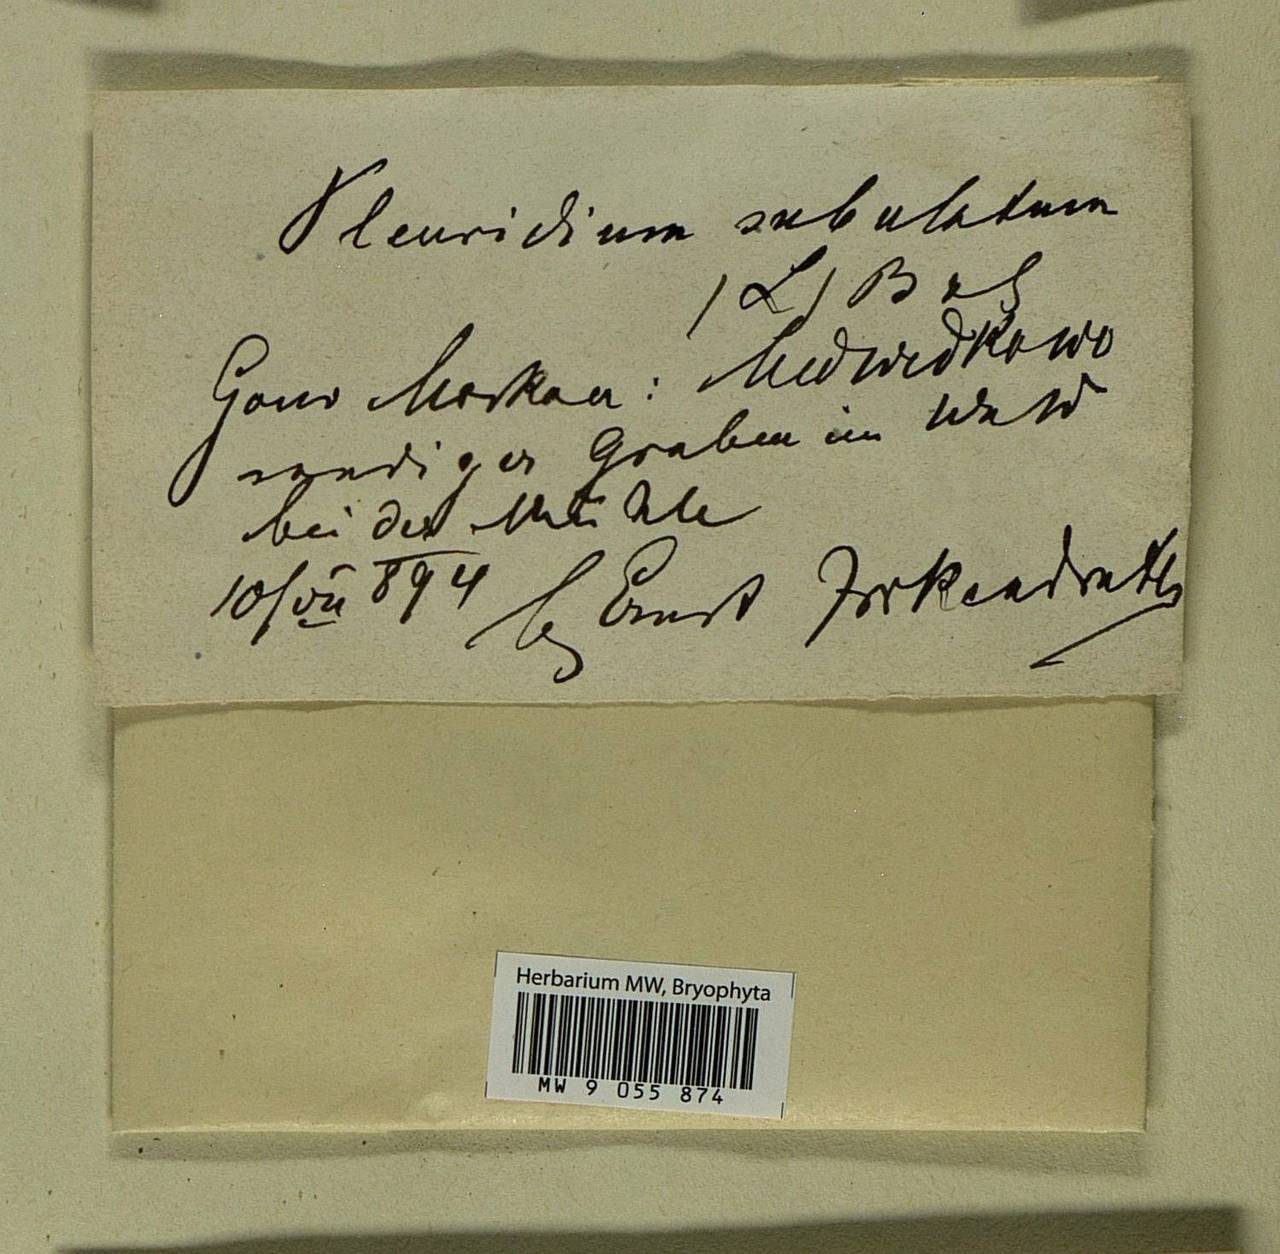 Pleuridium subulatum
(L) Rab
Gouv Moskau: Medwedkowo
sandiger Graben im Wald
bei der Mühle
10/VII 894 leg Ernst Zickendrath
Herbarium MW, Bryophyta
MW 9 055 874